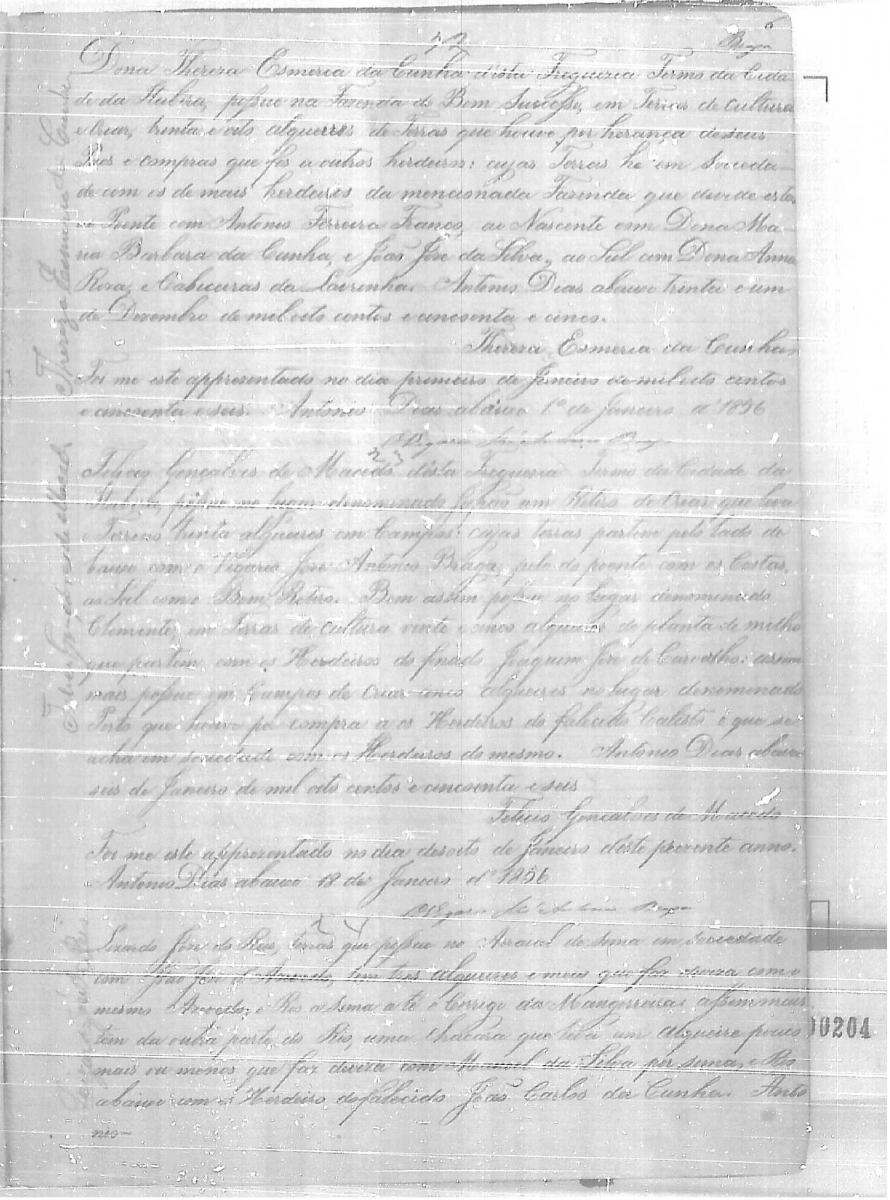 22
6
Braga
Dona Thereza Esmeria da Cunha désta Freguezia Termo da Cida
de da Itabira, possue na Fazenda do Bom Successo, em Terras de cultura
e criar, trinta e oito alqueires de Terras que houve por herança de seus
Paes e compras que fes a outros herdeiros: cujas Terras he em Socieda-
de com os de mais herdeiros da mencionada Fazenda que devide esta
ao Poente com Antonio Ferreira Franco, ao Nascente com Dona Ma-
ria Barbara da Cunha, e João Jose da Silva, ao Sul com Dona Anna
Roza, e Cabiceiras da Antonio Dias abaixo trinta e um
de Dezembro de mil oito centos e cincoenta e cinco.
Thereza Esmeria da Cunha
Foi me este appresentado no dia primeiro de Janeiro de mil oito centos
e cincoenta e seis. Antonio Dias abaixo 1º de Janeiro d' 1856
O Vigario José Antonio Braga
23
Felicio Gonçalves de Macedo désta Freguezia Termo da Cidade da
Itabira, possue no lugar denominado um Retiro de Criar que leva
e Terreos trinta alqueires em Campos: cujas terras partem pelo lado de
baixo com o Vigario Jose Antonio Braga, pelo do poente com os Costas,
ao Sul com o Bom Retiro. Bem assim possue no lugar denominado
Clemente, em Terras de cultura vinte e cinco alqueires de planta de milho
que partem com os Herdeiros do finado Joaquim Jose de Carvalho: assim
mais possue em Campos de Criar cinco alqueires no lugar denominado
Porto que houve por compra a os Herdeiros do falecido Calisto e que se
acha em sociedade com os Herdeiros do mesmo. Antonio Dias abaixo
seis de Janeiro de mil oito centos e cincoenta e seis
Felicio Gonçalves de Macedo
Foi me este apprezentado no dia desoito de Janeiro déste prezente anno.
Antonio Dias abaixo 18 de Janeiro d' 1856
O Vigario José Antonio Braga
24
Jose do Reis, terras que possue no Arraial de sima em sociedade
com João Jose d' Azevedo, tem tres alqueires e meio que faz diviza com o
mesmo Azevedo, e Rio a sima a té o Corrigo da Mangueira: assim mais
tem da outra parte do Rio, uma Chacara que leva um alqueire pouco
mais ou menos que faz diviza com Manoel da Silva por sima, e Rio
abaixo com os Herdeiro do falecido João Carlos da Cunha. Anto
nio-
Thereza Esmeria da Cunha
Felicio Gonçalves de Macedo
00204